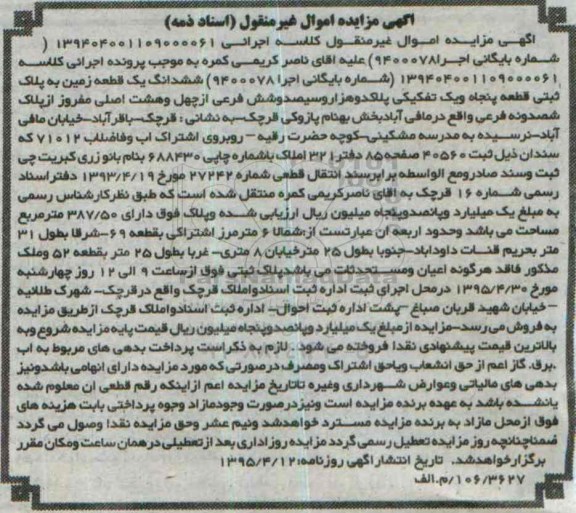 آگهی مزایده اموال غیرمنقول (اسناد ذمه)
آگهی مزایده اموال غیرمنقول کلاسه اجرائی ۱۳۹۴۰۴۰۰۱۱۰۹۰۰۰۰۶۱ (
شماره بایگانی اجرا ۹۴۰۰۰۷۸) علیه اقای ناصر کریمی کمره به موجب پرونده اجرائی کلاسه
۱۳۹۴۰۴۰۰۱۱۰۹۰۰۰۰۶۱ (شماره بایگانی اجرا ۹۴۰۰۰۷۸) ششدانگ یک قطعه زمین به پلاک
ثبتی قطعه پنجاه ویک تفکیکی پلاکدوهزاروسیصدوشش فرعی ازچهل وهشت اصلی مفروز ازپلاک
شصدونه فرعی واقع درمافی آبادبخش بهنام پازوکی قرچک-به نشانی : قرچک-باقرآباد-خیابان مافی
آباد-نرسیده به مدرسه مشکینی-کوچه حضرت رقیه - روبروی اشتراک اب وفاضلاب ۷۱۰۱۲ که
سندان ذیل ثبت ۴۰۵۶۰ صفحه ۸۵ دفتر ۳۲۱ املاک باشماره چاپی ۶۸۸۴۳۰ بنام بانو زری کبریت چی
ثبت وسند صادرومع الواسطه برابرسند انتقال قطعی شماره ۲۷۲۴۲ مورخ ۱۳۹۳/۴/۱۹ دفتراسناد
رسمی شماره ۱۶ قرچک به اقای ناصرکریمی کمره منتقل شده است که طبق نظرکارشناس رسمی
به مبلغ یک میلیارد وپانصدوپنجاه میلیون ریال ارزیابی شده وپلاک فوق دارای ۳۸۷/۵۰ مترمربع
مساحت می باشد وحدود اربعه آن عبارتست از:شمالا ۶ مترمرز اشتراکی بقطعه ۶۹-شرقا بطول ۳۱
متر بحریم قنات داوداباد-جنوبا بطول ۲۵ مترخیابان ۸ متری- غربا بطول ۲۵ متر بقطعه ۵۲ وملک
مذکور فاقد هرگونه اعیان ومستحدثات می باشدپلاک ثبتی فوق ازساعت ۹ الی ۱۲ روز چهارشنبه
مورخ ۱۳۹۵/۴/۳۰ درمحل اجرای ثبت اداره ثبت اسنادواملاک قرچک واقع درقرچک- شهرک طلائیه
- خیابان شهید قربان صباغ -پشت اداره ثبت احوال- اداره ثبت اسنادواملاک قرچک ازطریق مزایده
به فروش می رسد-مزایده ازمبلغ یک میلیارد وپانصدوپنجاه میلیون ریال قیمت پایه مزایده شروع وبه
بالاترین قیمت پیشنهادی نقدا فروخته می شود. لازم به ذکراست پرداخت بدهی های مربوط به اب
.برق. گاز اعم از حق انشعاب ویاحق اشتراک ومصرف درصورتی که مورد مزایده دارای انهامی باشدونیز
بدهی های مالیاتی وعوارض شهرداری وغیره تاتاریخ مزایده اعم ازاینکه رقم قطعی ان معلوم شده
یانشده باشد به عهده برنده مزایده است ونیزدرصورت وجودمازاد وجوه پرداختی بابت هزینه های
فوق ازمحل مازاد به برنده مزایده مسترد خواهدشد ونیم عشر وحق مزایده نقدا وصول می گردد
ضمناچنانچه روز مزایده تعطیل رسمی گردد مزایده روزاداری بعد ازتعطیلی درهمان ساعت ومکان مقرر
برگزارخواهدشد. تاریخ انتشارآگهی روزنامه: ۱۳۹۵/۴/۱۲
۱۰۶/۳۶۲۷/م.الف